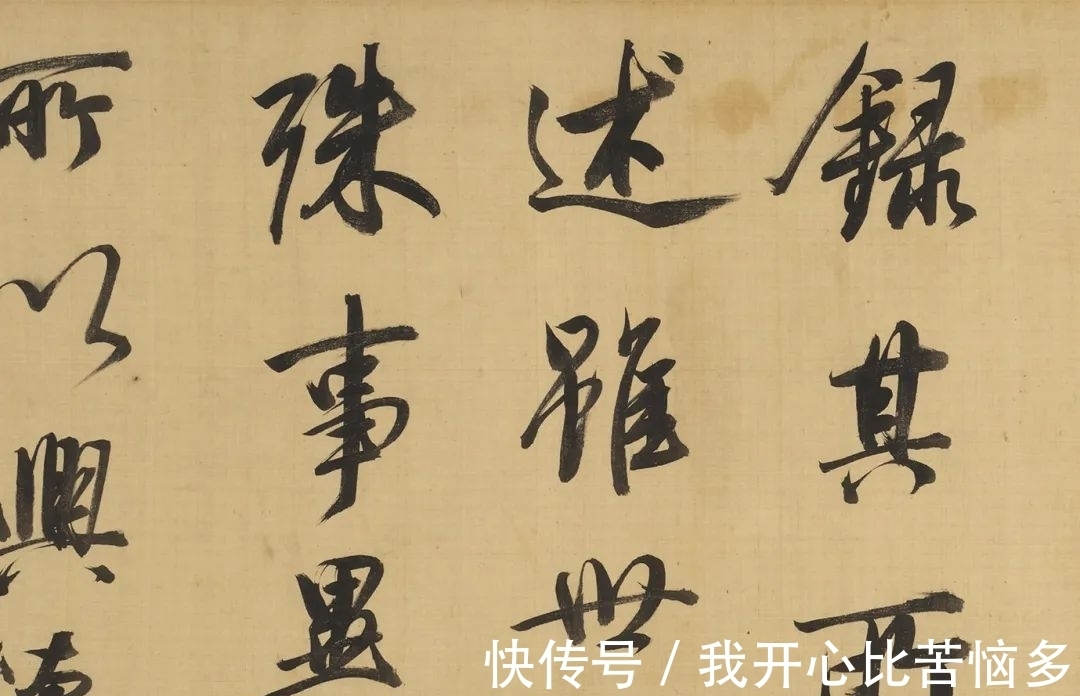 錄其所
述雖世
殊事異
所以興懷
快传号 / 我开心比苦恼多